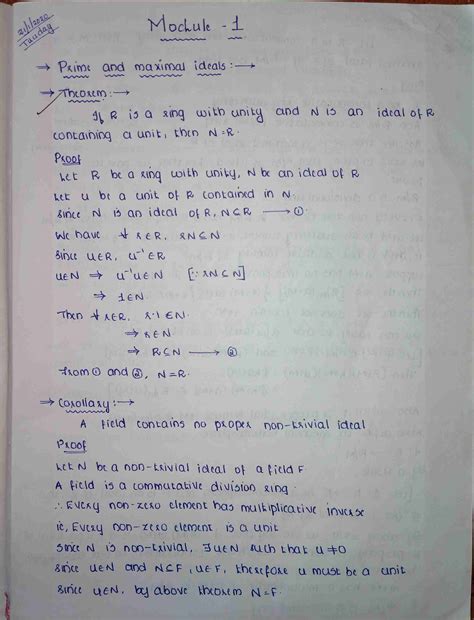 21/1/2020
Tuesday
Module - 1
→ Prime and maximal ideals :- →
→ Theorem :- →
If R is a ring with unity and N is an ideal of R
containing a unit, then N=R.
Proof
Let R be a ring with unity, N be an ideal of R
Let u be a unit of R contained in N
since N is an ideal of R, N⊆R → ①
We have ∀ r∈R, rN⊆N
since u∈R, u⁻¹∈R
u∈N ⇒ u⁻¹u∈N [∵ rN⊆N]
⇒ 1∈N
Then ∀ r∈R, r·1∈N
⇒ r∈N
⇒ R⊆N → ②
from ① and ②, N=R.
→ Corollary :- →
A field contains no proper non-trivial ideal
Proof
Let N be a non-trivial ideal of a field F
A field is a commutative division ring
∴ Every non-zero element has multiplicative inverse
ie, Every non-zero element is a unit
since N is non-trivial, ∃ u∈N such that u≠0
since u∈N and N⊆F, u∈F, therefore u must be a unit
since u∈N, by above theorem N=F.